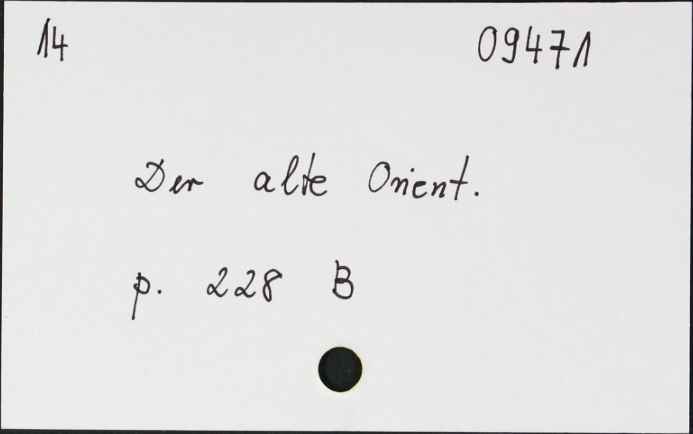 14 09471
Der alte Orient.
p. 228 B